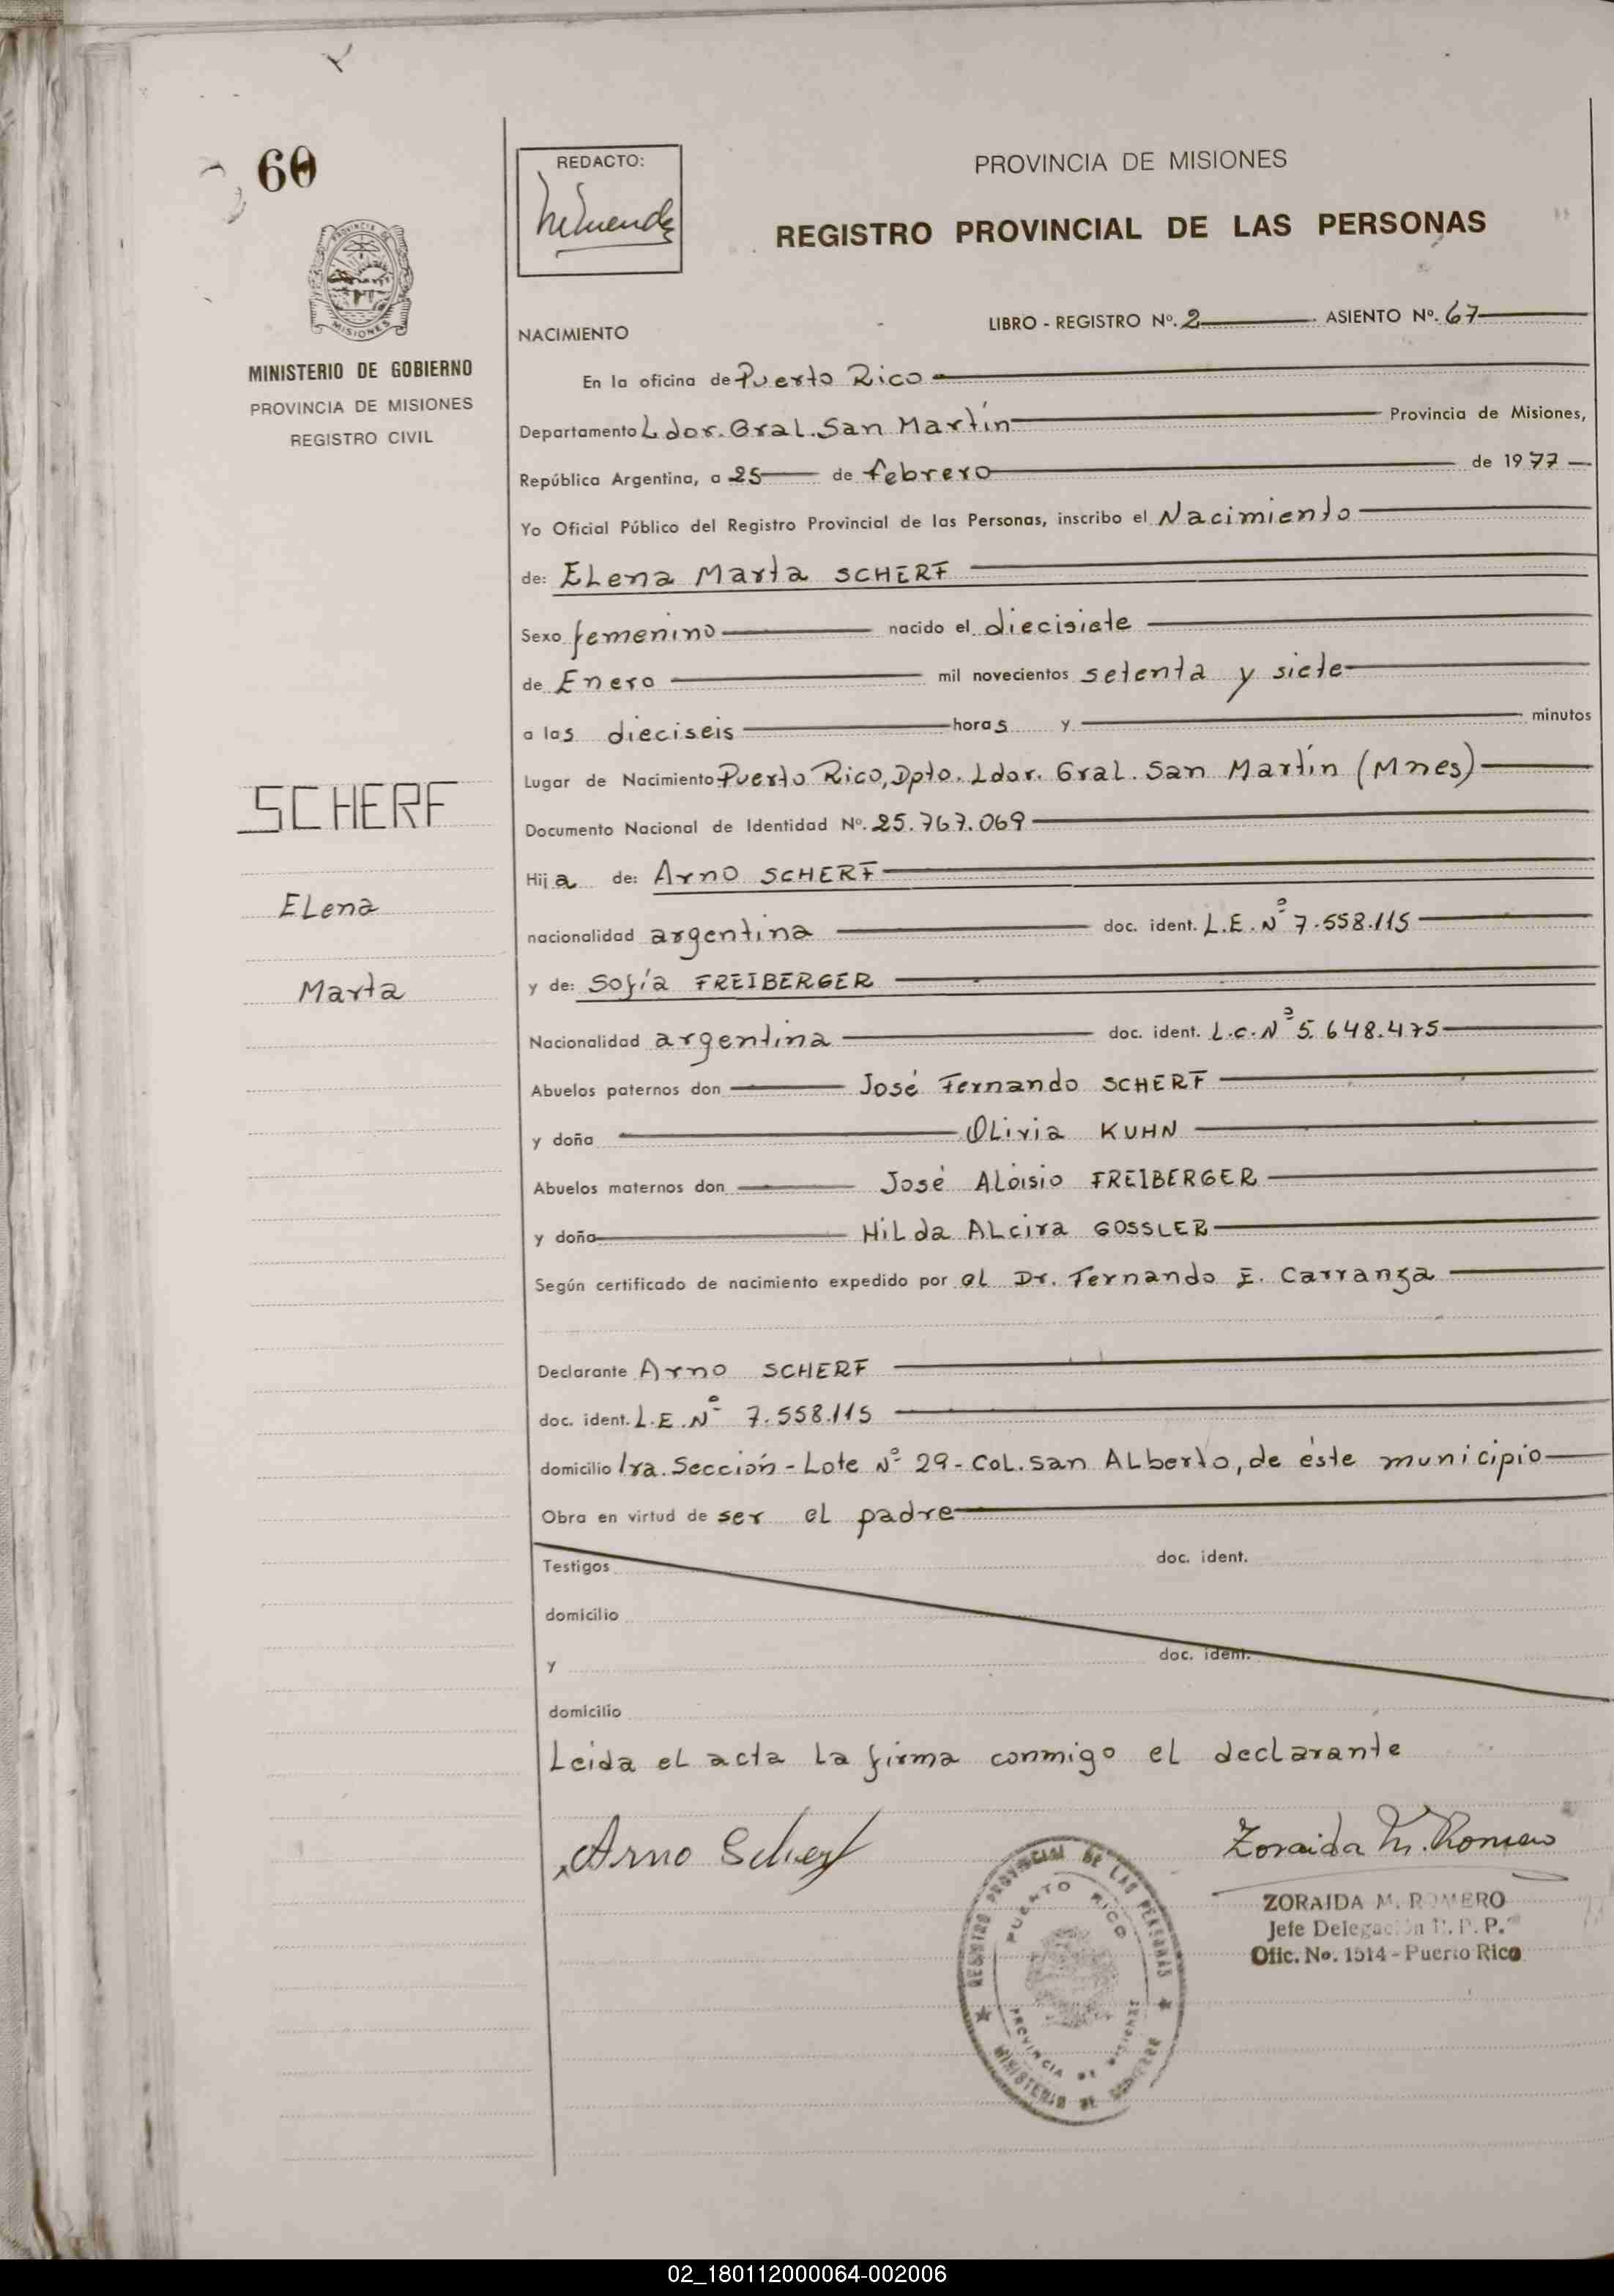 60
REDACTO:
PROVINCIA DE MISIONES
REGISTRO PROVINCIAL DE LAS PERSONAS
PROVINCIA DE
MISIONES
MINISTERIO DE GOBIERNO
PROVINCIA DE MISIONES
REGISTRO CIVIL
NACIMIENTO
LIBRO - REGISTRO Nº. 2 ASIENTO Nº. 67
En la oficina de Puerto Rico
Departamento Ldor. Gral. San Martín Provincia de Misiones,
República Argentina, a 25 de febrero de 1977
Yo Oficial Público del Registro Provincial de las Personas, inscribo el Nacimiento
de: Elena Marta SCHERF
Sexo femenino nacido el diecisiete
de Enero mil novecientos setenta y siete
a las dieciseis horas y minutos
Lugar de Nacimiento Puerto Rico, Dpto. Ldor. Gral. San Martín (Mnes)
SCHERF
Elena
Marta
Documento Nacional de Identidad Nº. 25.767.069
Hija de: Arno SCHERF
nacionalidad argentina doc. ident. L.E. Nº 7.558.115
y de: Sofía FREIBERGER
Nacionalidad argentina doc. ident. L.C. Nº 5.648.475
Abuelos paternos don José Fernando SCHERF
y doña Olivia KUHN
Abuelos maternos don José Aloisio FREIBERGER
y doña Hilda Alcira GOSSLER
Según certificado de nacimiento expedido por el Dr. Fernando E. Carranza
Declarante Arno SCHERF
doc. ident. L.E. Nº 7.558.115
domicilio 1ra. Sección - Lote Nº 29 - Col. San Alberto, de éste municipio
Obra en virtud de ser el padre
Testigos doc. ident.
domicilio
y doc. ident.
domicilio
Leida el acta la firma conmigo el declarante
Arno Scherf
Zoraida M. Romero
ZORAIDA M. ROMERO
Jefe Delegación R. P. P.
Ofic. No. 1514 - Puerto Rico
REGISTRO PROVINCIAL DE LAS PERSONAS
PUERTO RICO
PROVINCIA DE MISIONES
MINISTERIO DE GOBIERNO
02_180112000064-002006